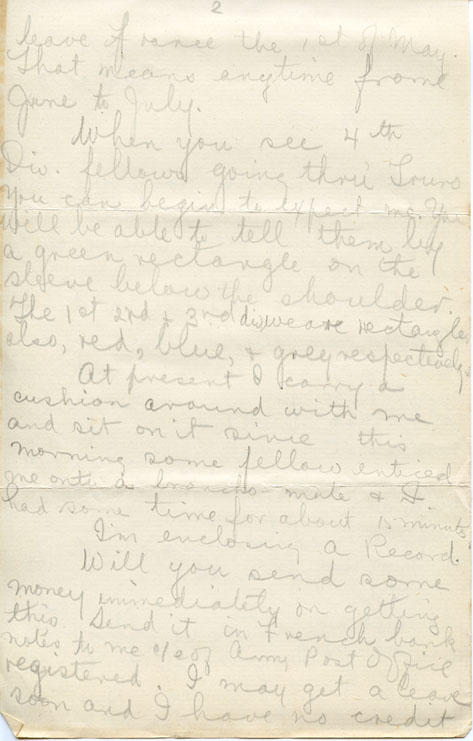 2
leave France the 1st of May.
That means anytime frome
June to July.
When you see 4th
Div. fellows going thru' Truro
you can begin to expect me. You
will be able to tell them by
a green rectangle on the
sleeve below the shoulder.
The 1st 2nd & 3rd div, weare rectangles
also, red, blue, & grey respectively.
At present I carry a
cushion around with me
and sit on it since this
morning some fellow enticed
me onto a broncho-mule & I
had some time for about 15 minutes
I'm enclosing a Record.
Will you send some
money immediately on getting
this. Send it in French bank
notes to me c/o of Army Post Office
registered. I may get a leave
soon and I have no credit